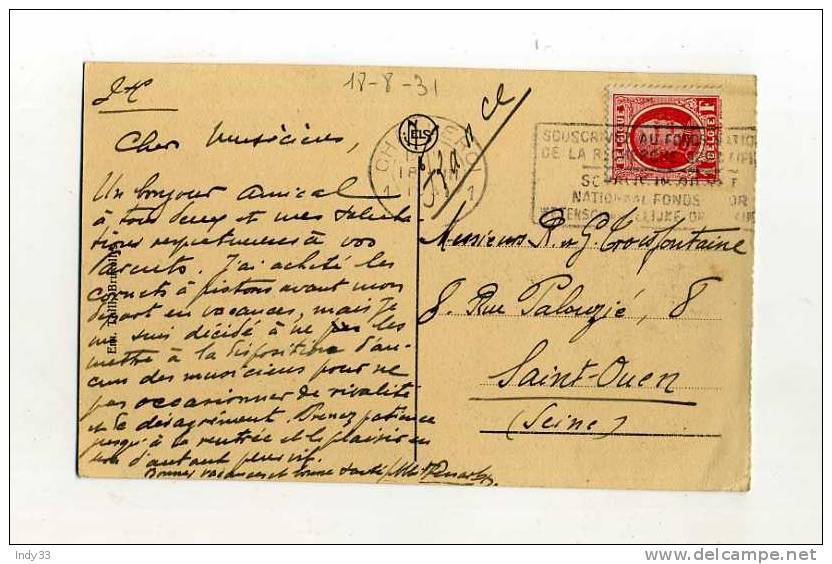 18-8-31
Cher musiciens,
Un bonjour amical
à tous deux et mes saluta-
tions respectueuses à vos
Parents. J'ai acheté les
cornets à pistons avant mon
départ en vacances, mais je
me suis décidé à ne pas les
mettre à la disposition d'au-
cun des musiciens pour ne
pas occasionner de rivalité
et de désagrément. Prenez patience
jusqu'à la rentrée et le plaisir en
sera d'autant plus vif.
Bonnes vacances et bonne santé
Em. Thill, Bruxelles
ELS
1 1
France
SOUSCRIV AU FONDS NATION
DE LA RE
NATIONAL FONDS OR
WETENSC ELIJKE OR
BELGIQUE 1 F BELGIE
Messieurs R. et G. Troisfontaine
8. Rue Palouzié, 8
Saint-Ouen
(Seine)
Indy33
delcampe.net